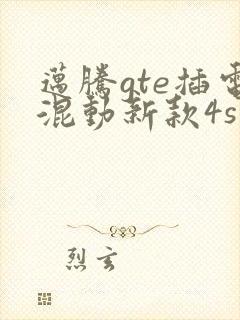 邁騰gte插電
混動新款4s
烈玄